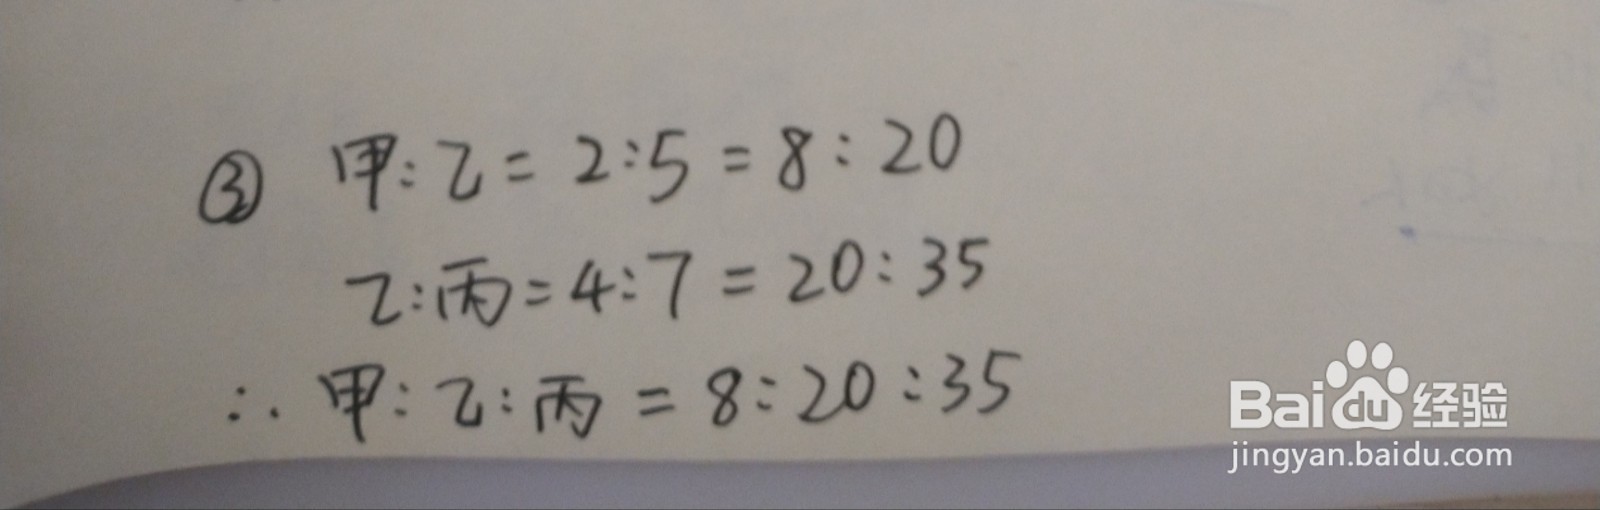 ③ 甲:乙=2:5=8:20
乙:丙=4:7=20:35
∴ 甲:乙:丙=8:20:35
Baidu经验
jingyan.baidu.com